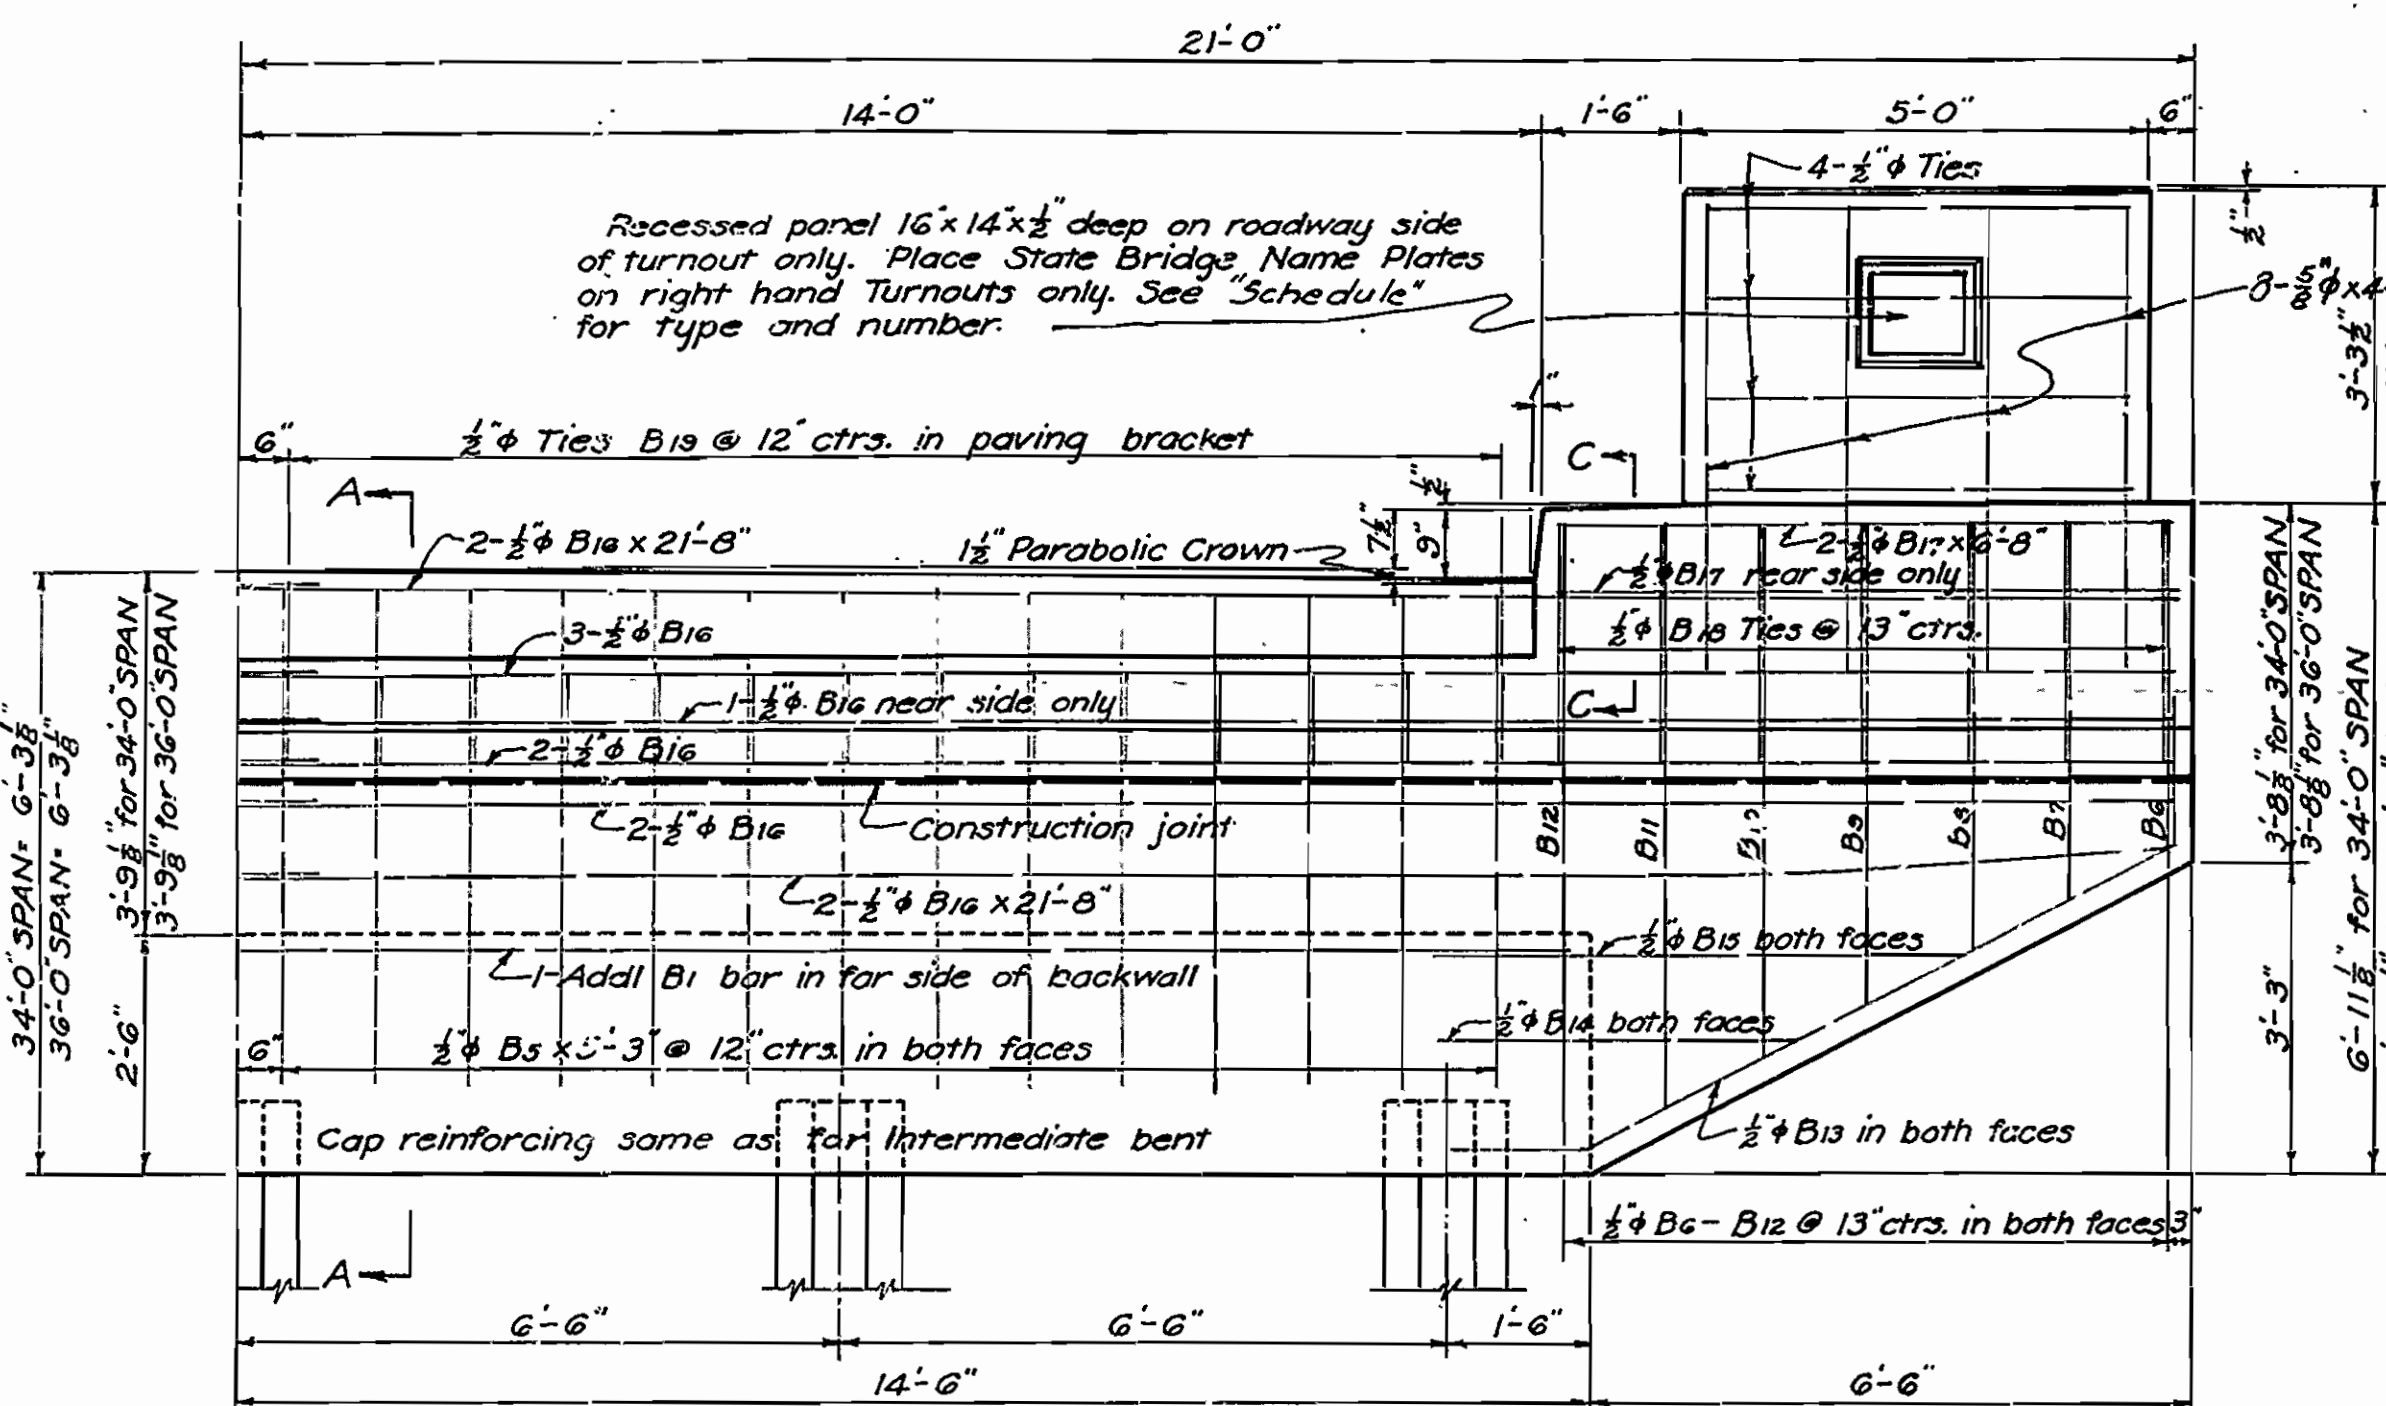 21'-0"
14'-0"
1'-6"
5'-0"
6"
4-½"ϕ Ties
Recessed panel 16"x14"x½" deep on roadway side
of turnout only. Place State Bridge Name Plates
on right hand Turnouts only. See "Schedule"
for type and number.
½"
8-⅝"ϕx4-
3'-3½"
6"
½"ϕ Ties B19 @ 12" ctrs. in paving bracket
A
C
½"
7½"
9"
2-½"ϕ B16 x 21'-8"
1½" Parabolic Crown
2-½"ϕ B17 x 6'-8"
½"ϕ B17 rear side only
3-½"ϕ B16
½"ϕ B18 Ties @ 13" ctrs.
1-½"ϕ B16 near side only
C
2-½"ϕ B16
2-½"ϕ B16
Construction joint
B12
B11
B9
B8
B7
B6
2-½"ϕ B16 x 21'-8"
½"ϕ B15 both faces
1-Addl B1 bar in far side of backwall
½"ϕ B14 both faces
6"
½"ϕ B5 x 5'-3" @ 12" ctrs. in both faces
Cap reinforcing same as for Intermediate bent
½"ϕ B13 in both faces
½"ϕ B6-B12 @ 13" ctrs. in both faces
3"
A
34'-0" SPAN= 6'-3⅛"
36'-0" SPAN= 6'-3⅛"
3'-9⅛" for 34'-0" SPAN
3'-9⅛" for 36'-0" SPAN
2'-6"
3'-8⅛" for 34'-0" SPAN
3'-8⅛" for 36'-0" SPAN
3'-3"
6'-11⅛" for 34'-0" SPAN
6'-6"
6'-6"
1'-6"
14'-6"
6'-6"